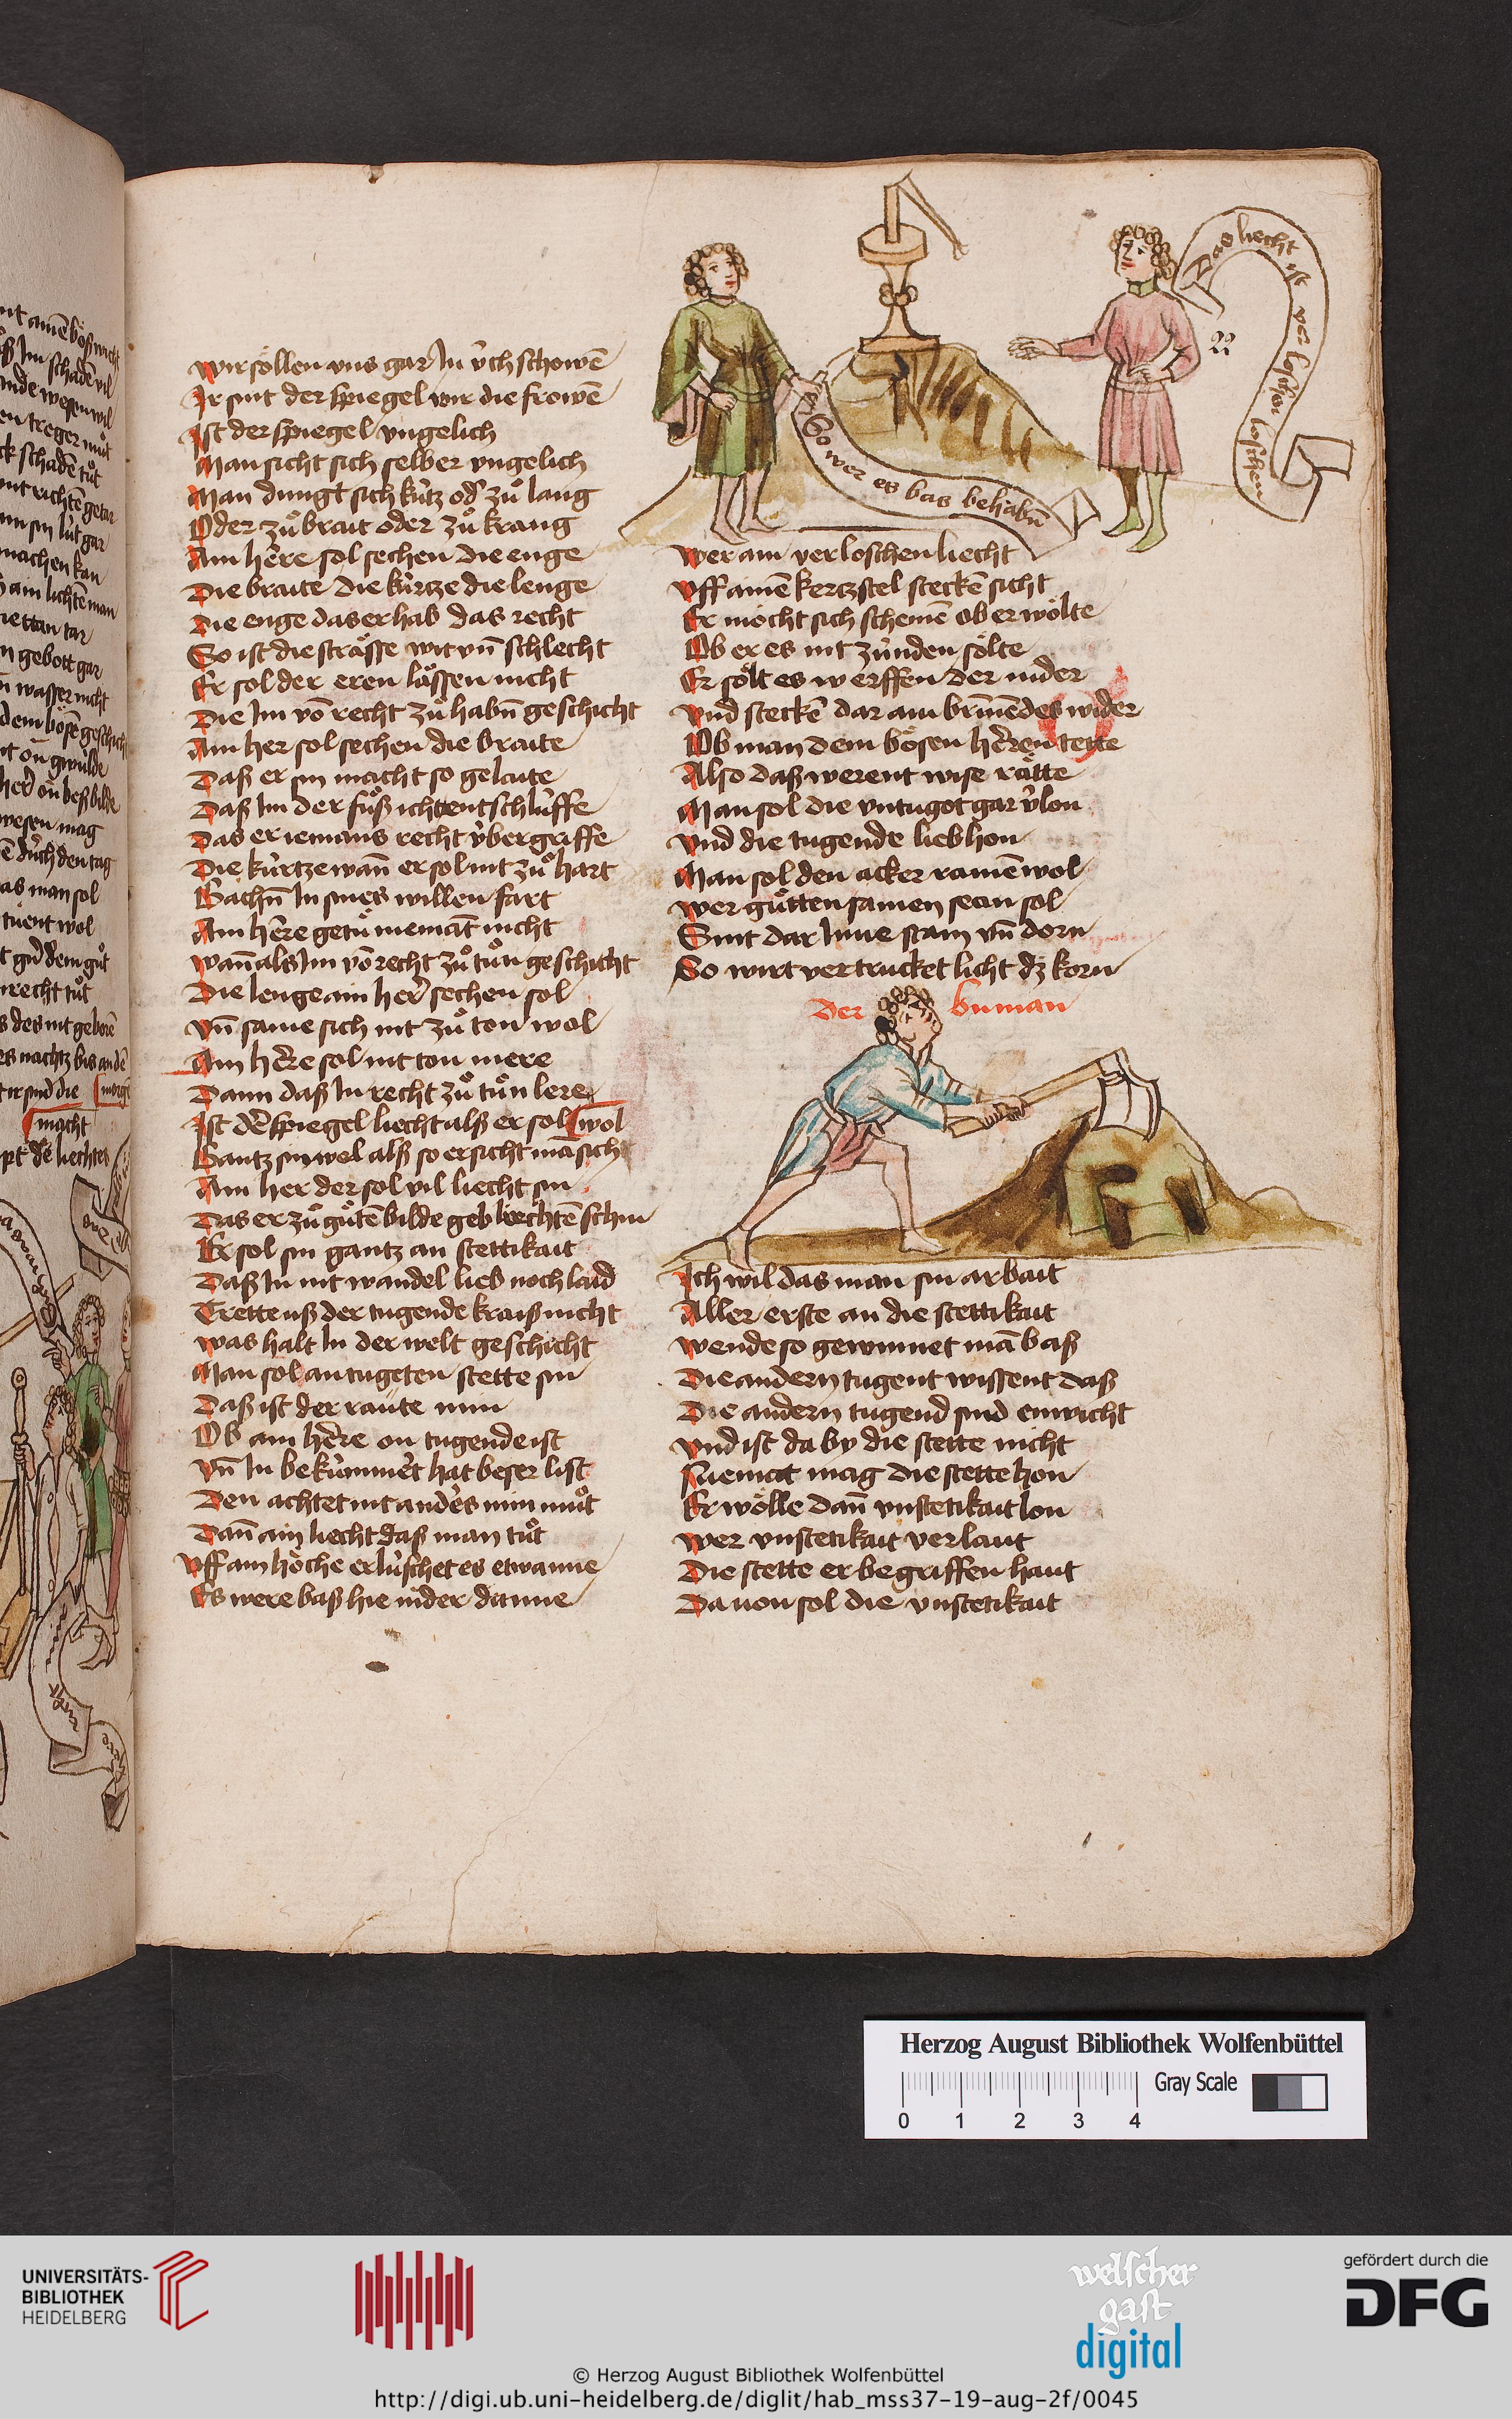 wir söllen vns gar In v̈ch schowē
Ir sint der spiegel wir die frowē
Ist der spiegel vngelich
Man sicht sich selber vngelich
Man dungt sich kürtz od' zů lang
Oder zů brait oder zů krang
Ain herre sol sechen die enge
Die braite die kürtze die lenge
Die enge das er hab das recht
So ist die strässe wit vn̄ schlecht
Er sol der eren lässen nicht
Die Im vō recht zů habn̄ geschicht
Ain her sol sechen die braite
Daß er sin macht so gelaite
Daß Im der fůß icht entschlüffe
Das er iemans recht v̈bergriffe
Die kürtze wan̄ er sol nit zů hart
Gachn̄ In sines willen fart
Ain herre getů niemāt nicht
wan̄ als Im vō recht zů tůn geschicht
Die lenge ain her sechen sol
vn̄ same sich nit zů ton wol
Ain herre sol nit ton mere
Dann daß In recht zů tůn lere
Ist d' spiegel liecht alß er sol wol
Gantz sinwel alß so ersicht mā sich
Ain her der sol vil liecht sin
Das er zů gůtē bilde geb liechtē schin
Er sol sin gantz an stettikait
Daß In nit wandel lieb noch laid
Trette uß der tugende kraiß nicht
was halt In der welt geschicht
Man sol an tugeten stette sin
Daß ist der raute min
Ob ain herre on tugende ist
vn̄ In bekümmert hat beser list
Den achtet nit anders min můt
Dan̄ ain liecht daß man tůt
vff ain höche erlüschet es etwanne
Es were baß hie nider danne
Das liecht ist ver loschen
So wer es bas behabn̄
22
wer ain verloschen liecht
vff ainē kertzstel steckē sicht
Er möcht sich schemē ob er wölte
Ob er es nit zünden sölte
Er sölt es werffen der nider
vnd steckē dar ain brinēdes wider
Ob man dem bösen herren tette
Also daß werent wise rätte
Man sol die vntugot gar v̈lon
vnd die tugende lieb hon
Man sol den acker ramē wol
wer gůtten samen sean sol
Sint dar Inne stain vn̄ dorn
So wirt vertrucket licht dz korn
Der buman
Ich wil das man sin arbait
Aller erste an die stettikait
wende so gewinnet mā baß
Die andern tugent wissent daß
Die andern tugend sind enwicht
vnd ist da by die stette nicht
Niemat mag die stette hon
Er wölle dan̄ vnstetikait lon
wer vnstetikait verlaut
Die stette er begriffen haut
Da uon sol die vnstetikait
Herzog August Bibliothek Wolfenbüttel
Gray Scale
0 1 2 3 4
UNIVERSITÄTS-
BIBLIOTHEK
HEIDELBERG
welscher
gast
digital
gefördert durch die
DFG
© Herzog August Bibliothek Wolfenbüttel
http://digi.ub.uni-heidelberg.de/diglit/hab_mss37-19-aug-2f/0045